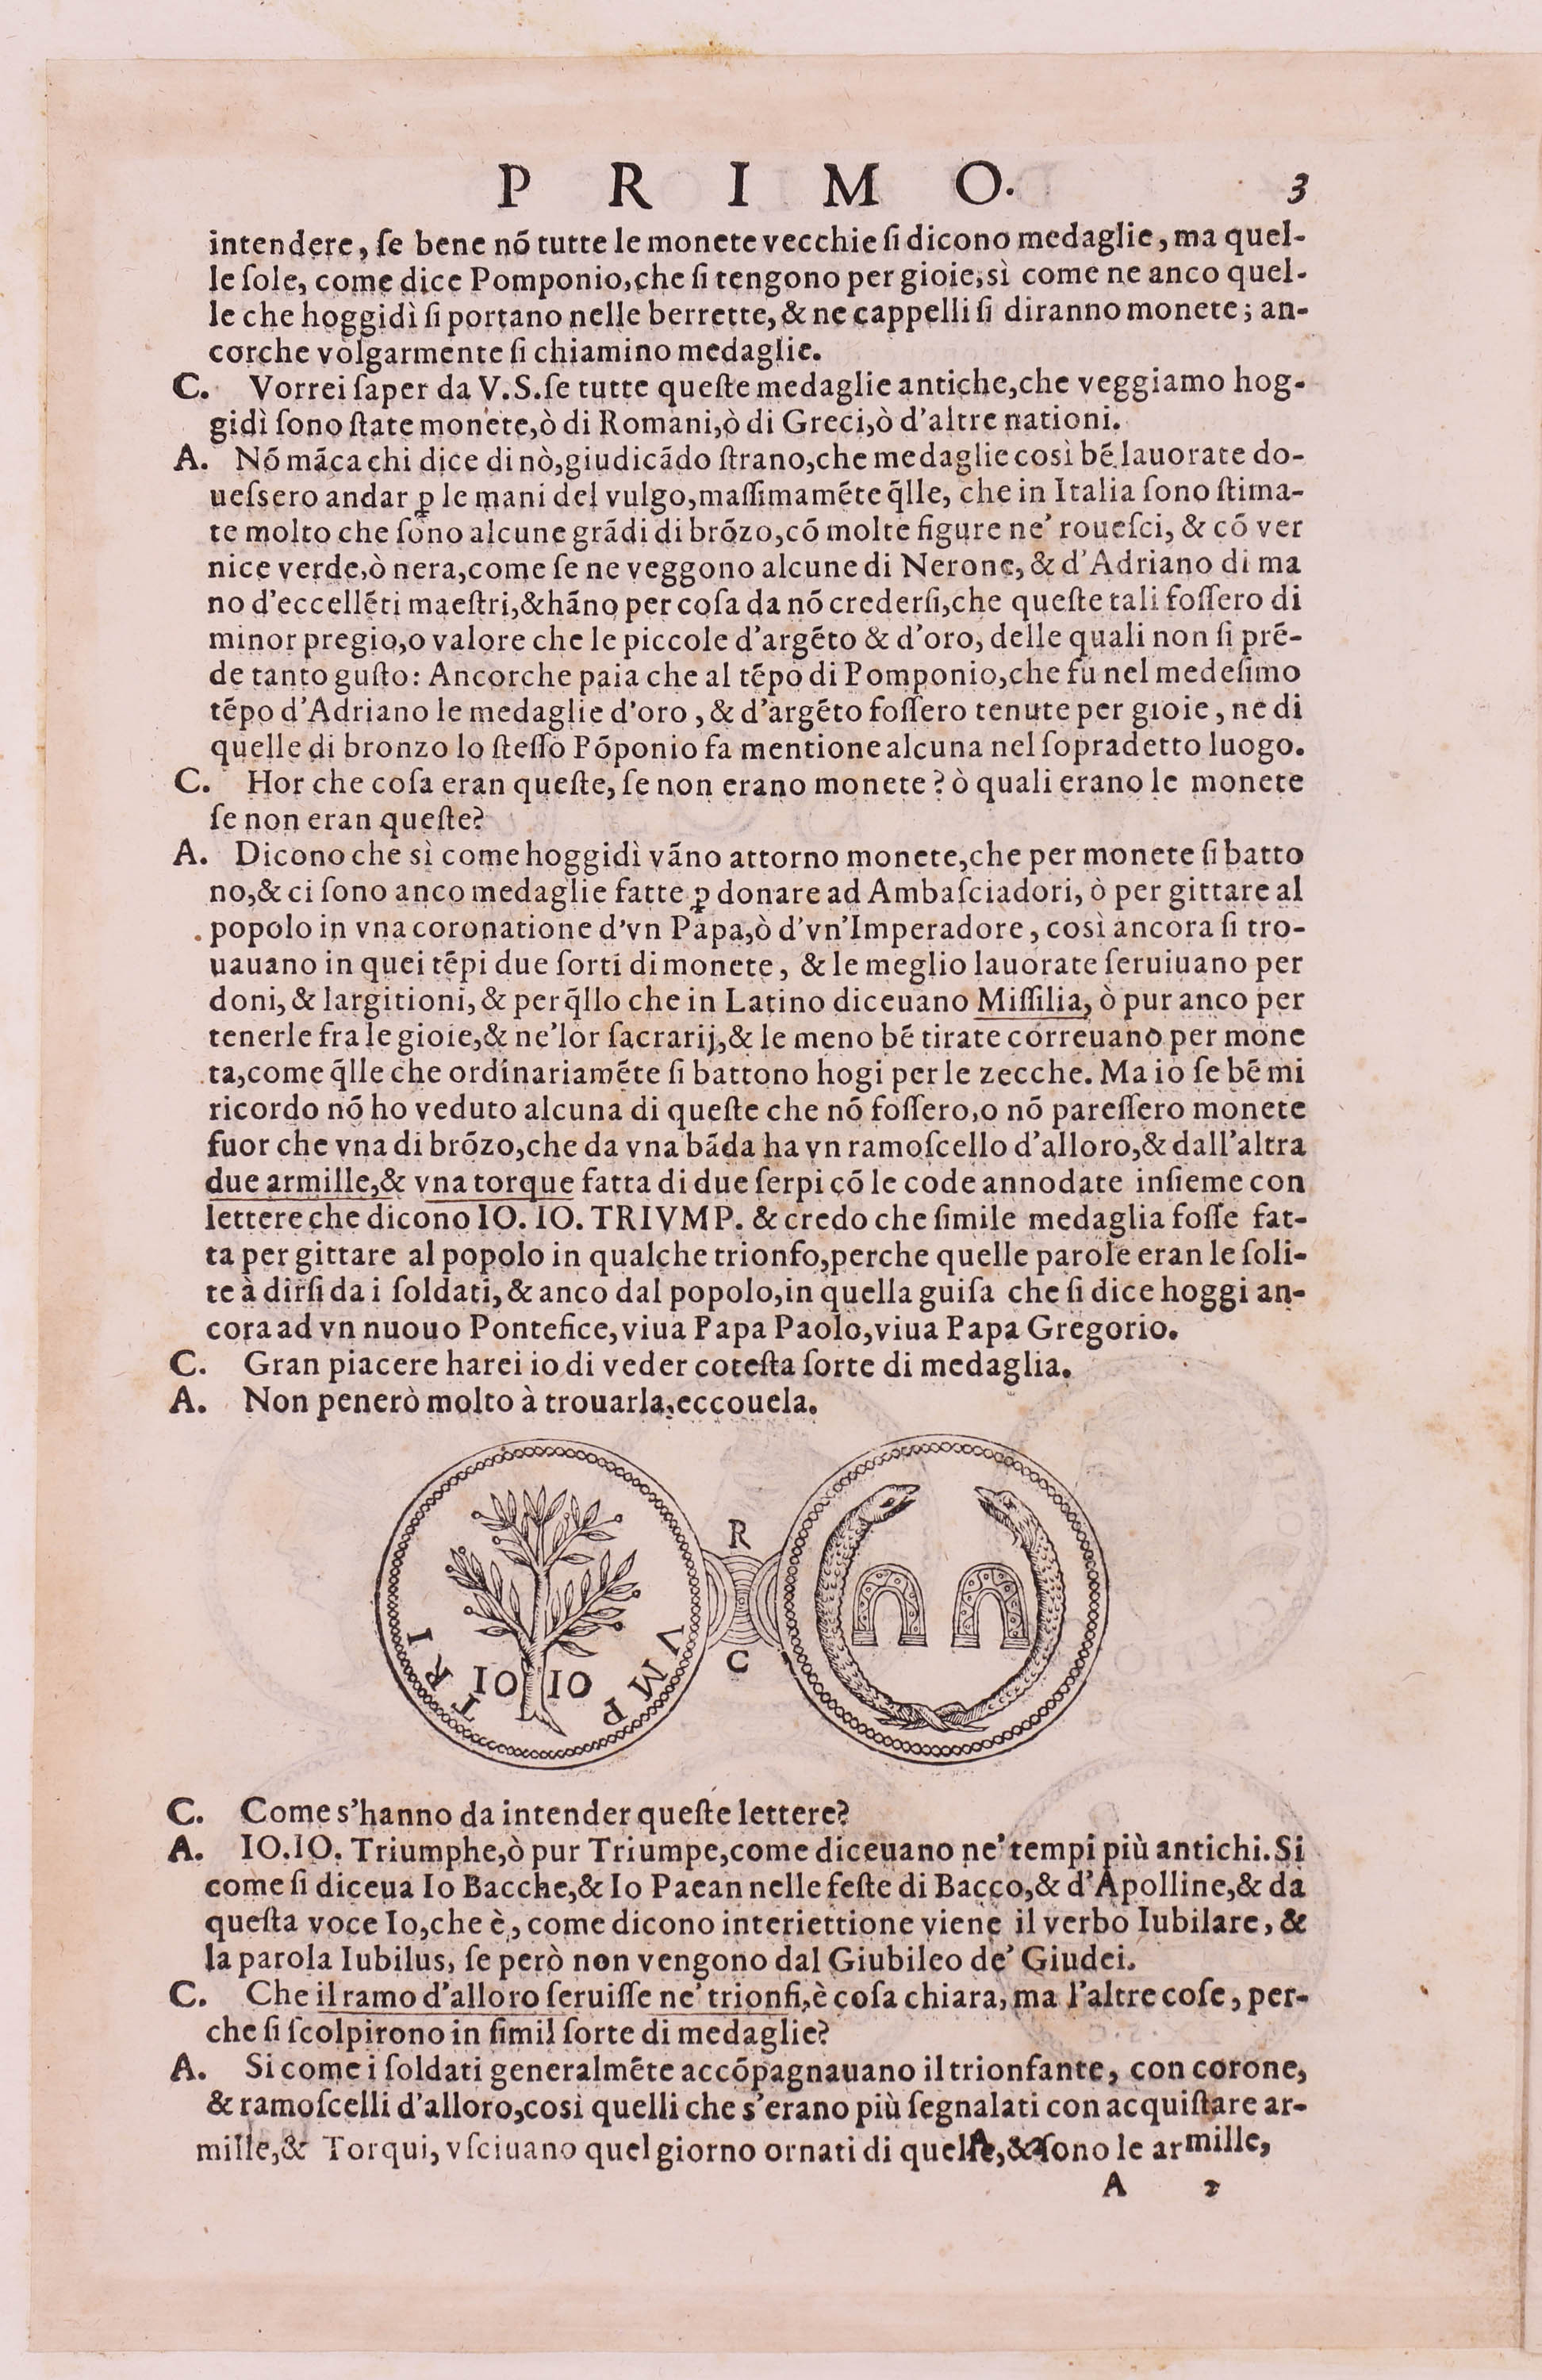 P R I M O. 3
intendere, ſe bene nõ tutte le monete vecchie ſi dicono medaglie, ma quel-
le ſole, come dice Pomponio, che ſi tengono per gioie, sì come ne anco quel-
le che hoggidì ſi portano nelle berrette, & ne cappelli ſi diranno monete; an-
corche volgarmente ſi chiamino medaglie.
C. Vorrei ſaper da V.S. ſe tutte queſte medaglie antiche, che veggiamo hog-
gidì ſono ſtate monete, ò di Romani, ò di Greci, ò d'altre nationi.
A. Nõ mãca chi dice di nò, giudicãdo ſtrano, che medaglie così bẽ lauorate do-
ueſsero andar ꝑ le mani del vulgo, maſſimamẽte q̃lle, che in Italia ſono ſtima-
te molto che ſono alcune grãdi di brõzo, cõ molte figure ne' roueſci, & cõ ver
nice verde, ò nera, come ſe ne veggono alcune di Nerone, & d'Adriano di ma
no d'eccellẽti maeſtri, & hãno per coſa da nõ crederſi, che queſte tali foſſero di
minor pregio, o valore che le piccole d'argẽto & d'oro, delle quali non ſi prẽ-
de tanto guſto: Ancorche paia che al tẽpo di Pomponio, che fu nel medeſimo
tẽpo d'Adriano le medaglie d'oro, & d'argẽto foſſero tenute per gioie, ne di
quelle di bronzo lo ſteſſo Põponio fa mentione alcuna nel ſopradetto luogo.
C. Hor che coſa eran queſte, ſe non erano monete? ò quali erano le monete
ſe non eran queſte?
A. Dicono che sì come hoggidì vãno attorno monete, che per monete ſi batto
no, & ci ſono anco medaglie fatte ꝑ donare ad Ambaſciadori, ò per gittare al
popolo in vna coronatione d'vn Papa, ò d'vn'Imperadore, così ancora ſi tro-
uauano in quei tẽpi due ſorti di monete, & le meglio lauorate ſeruiuano per
doni, & largitioni, & per q̃llo che in Latino diceuano Miſſilia, ò pur anco per
tenerle fra le gioie, & ne' lor ſacrarij, & le meno bẽ tirate correuano per mone
ta, come q̃lle che ordinariamẽte ſi battono hogi per le zecche. Ma io ſe bẽ mi
ricordo nõ ho veduto alcuna di queſte che nõ foſſero, o nõ pareſſero monete
fuor che vna di brõzo, che da vna bãda ha vn ramoſcello d'alloro, & dall'altra
due armille, & vna torque fatta di due ſerpi cõ le code annodate inſieme con
lettere che dicono IO. IO. TRIVMP. & credo che ſimile medaglia foſſe fat-
ta per gittare al popolo in qualche trionfo, perche quelle parole eran le ſoli-
te à dirſi da i ſoldati, & anco dal popolo, in quella guiſa che ſi dice hoggi an-
cora ad vn nuouo Pontefice, viua Papa Paolo, viua Papa Gregorio.
C. Gran piacere harei io di veder coteſta ſorte di medaglia.
A. Non penerò molto à trouarla, eccouela.
R
C
IO IO
TRI VMP
C. Come s'hanno da intender queſte lettere?
A. IO. IO. Triumphe, ò pur Triumpe, come diceuano ne' tempi più antichi. Si
come ſi diceua Io Bacche, & Io Paean nelle feſte di Bacco, & d'Apolline, & da
queſta voce Io, che è, come dicono interiettione viene il verbo Iubilare, &
la parola Iubilus, ſe però non vengono dal Giubileo de' Giudei.
C. Che il ramo d'alloro ſeruiſſe ne' trionfi, è coſa chiara, ma l'altre coſe, per-
che ſi ſcolpirono in ſimil ſorte di medaglie?
A. Si come i ſoldati generalmẽte accõpagnauano il trionfante, con corone,
& ramoſcelli d'alloro, così quelli che s'erano più ſegnalati con acquiſtare ar-
mille, & Torqui, vſciuano quel giorno ornati di quelle, & ſono le armille,
A 2